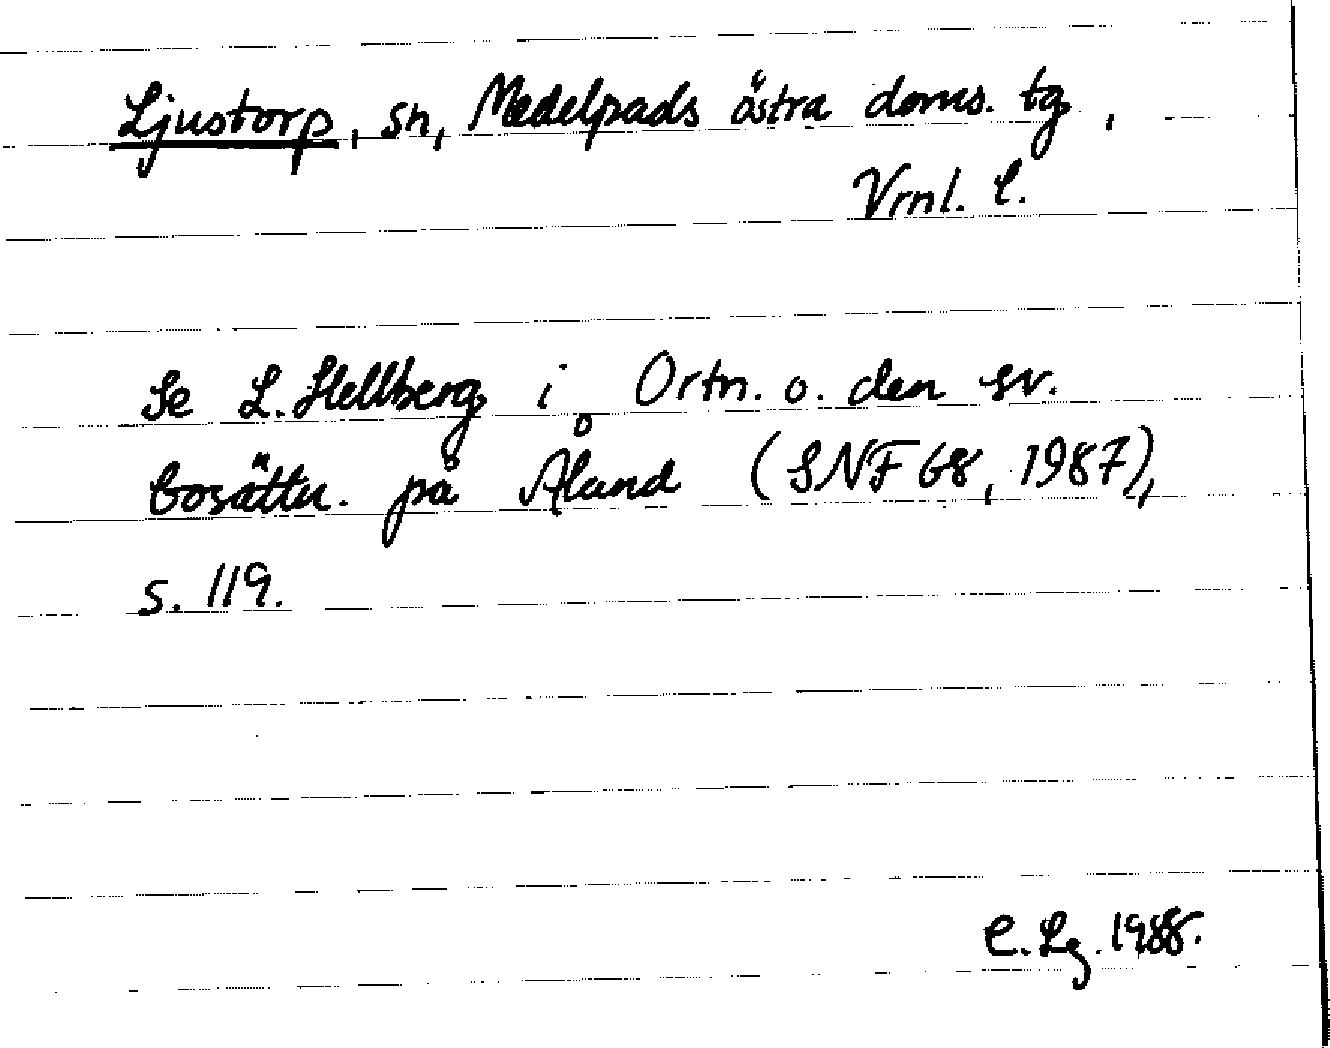 Ljustorp, sn, Medelpads östra doms. tg,
Vrnl. l.
Se L. Hellberg i Ortn. o. den sv.
bosättn. på Åland (SNF 68, 1987),
s. 119.
C. Lg. 1988.